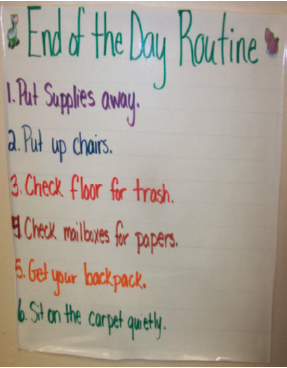 End of the Day Routine
1. Put Supplies away.
2. Put up chairs.
3. Check floor for trash.
4 Check mailboxes for papers.
5. Get your backpack.
6. Sit on the carpet quietly.